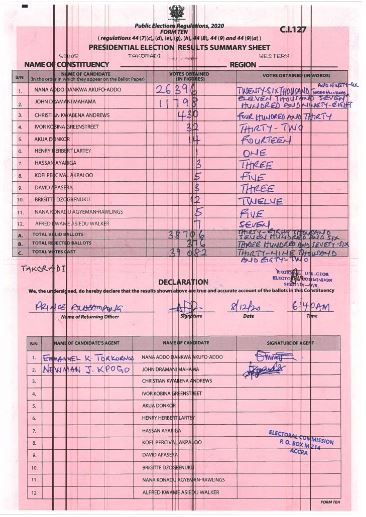 Public Elections Regulations, 2020
FORM TEN
C.I.127
(regulations 44 (7)(c),(d), (e), (g), (h), 44 (8), 44 (9) and 44 (9)(a))
PRESIDENTIAL ELECTION RESULTS SUMMARY SHEET
TAKORADI WESTERN
NAME OF CONSTITUENCY REGION
S/N NAME OF CANDIDATE VOTES OBTAINED VOTES OBTAINED (IN WORDS)
(In the order in which they appear on the Ballot Paper) (IN FIGURES)
1. NANA ADDO DANKWA AKUFO-ADDO 26396 TWENTY-SIX THOUSAND AND NINETY-SIX
2. JOHN DRAMANI MAHAMA 11798 ELEVEN THOUSAND SEVEN HUNDRED AND NINETY-EIGHT
3. CHRISTIAN KWABENA ANDREWS 430 FOUR HUNDRED AND THIRTY
4. IVOR KOBINA GREENSTREET 32 THIRTY-TWO
5. AKUA DONKOR 14 FOURTEEN
6. HENRY HERBERT LARTEY 1 ONE
7. HASSAN AYARIGA 3 THREE
8. KOFI PERCIVAL AKPALOO 5 FIVE
9. DAVID APASERA 3 THREE
10. BRIGITTE DZOGBENUKU 12 TWELVE
11. NANA KONADU AGYEMAN-RAWLINGS 5 FIVE
12. ALFRED KWAME ASIEDU WALKER 7 SEVEN
A. TOTAL VALID BALLOTS 38706 THIRTY-EIGHT THOUSAND SEVEN HUNDRED AND SIX
B. TOTAL REJECTED BALLOTS 376 THREE HUNDRED AND SEVENTY-SIX
C. TOTAL VOTES CAST 39082 THIRTY-NINE THOUSAND AND EIGHTY-TWO
TAKORADI
DECLARATION
We, the undersigned, do hereby declare that the results shown above are true and accurate account of the ballots in this Constituency
PRINCE 8/12/20 6:40AM
Name of Returning Officer Signature Date Time
S/N NAME OF CANDIDATE'S AGENT NAME OF CANDIDATE SIGNATURE OF AGENT
1. EMMANUEL K. NANA ADDO DANKWA AKUFO-ADDO
2. NEWMAN J. KPOGO JOHN DRAMANI MAHAMA
3. CHRISTIAN KWABENA ANDREWS
4. IVOR KOBINA GREENSTREET
5. AKUA DONKOR
6. HENRY HERBERT LARTEY
7. HASSAN AYARIGA
8. KOFI PERCIVAL AKPALOO
9. DAVID APASERA
10. BRIGITTE DZOGBENUKU
11. NANA KONADU AGYEMAN-RAWLINGS
12. ALFRED KWAME ASIEDU WALKER
ELECTORAL COMMISSION
P. O. BOX M 214
ACCRA
FORM TEN